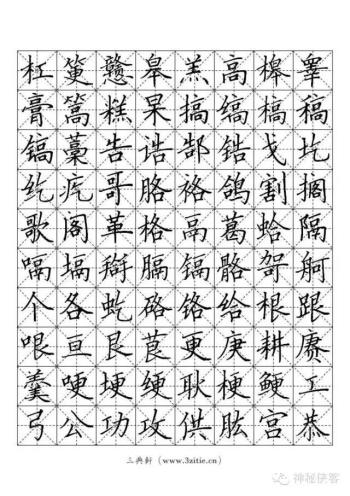 杠筻戆皋羔高槔睾
膏篙糕杲搞缟槁稿
镐藁告诰郜锆戈圪
纥疙哥胳袼鸽割搁
歌阁革格鬲葛蛤隔
嗝塥搿膈镉骼哿舸
个各虼硌铬给根跟
哏亘艮茛更庚耕赓
羹哽埂绠耿梗鲠工
弓公功攻供肱宫恭
三典轩（www.3zitie.cn）
神秘侠客